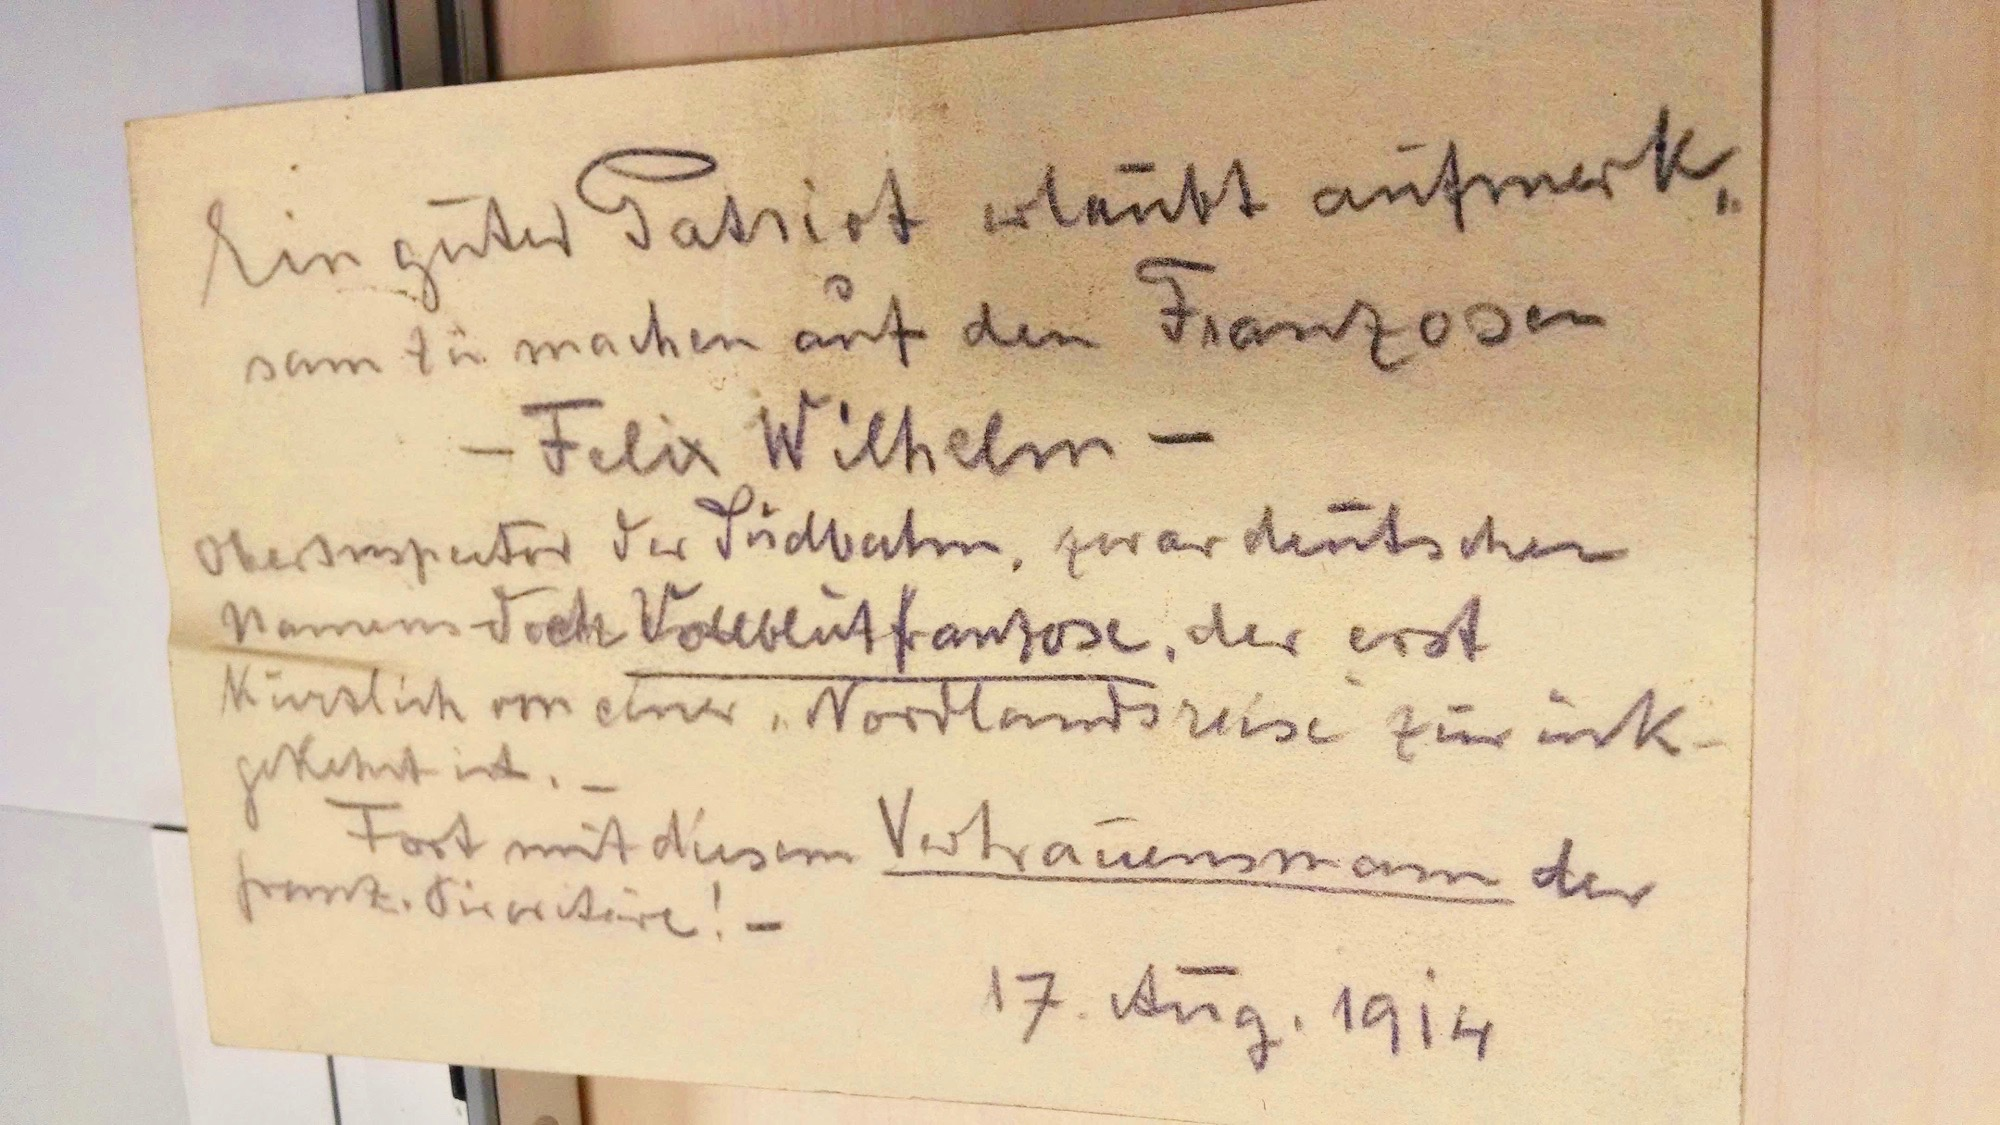 Ein guter Patriot erlaubt aufmerk„
sam zu machen auf den Franzosen
– Felix Wilhelm –
Oberinspector der Südbahn, zwar deutschen
Namens doch Vollblutfranzose, der erst
kürzlich von einer „Nordlandsreise zurück-
gekehrt ist. –
Fort mit diesem Vertrauensmann der
franz. Prioritäre! –
17. Aug. 1914